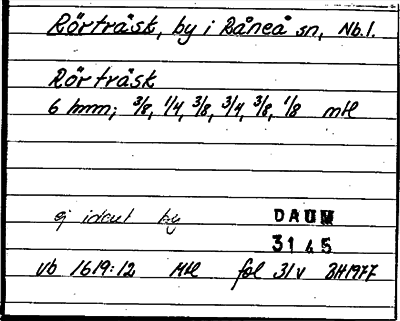 Rörträsk, by i Råneå sn, Nb.l.
Rörträsk
6 hmn; 3/8, 1/4, 3/8, 3/4, 3/8, 1/8 mtl
ej ident by
DAUM
3145
vb 1619:12 Mtl fol 31v BH1977